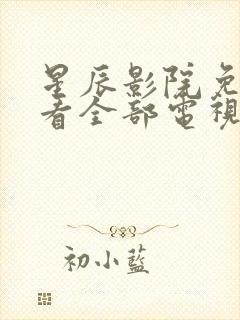 星辰影院免
看全部電視
初小藍